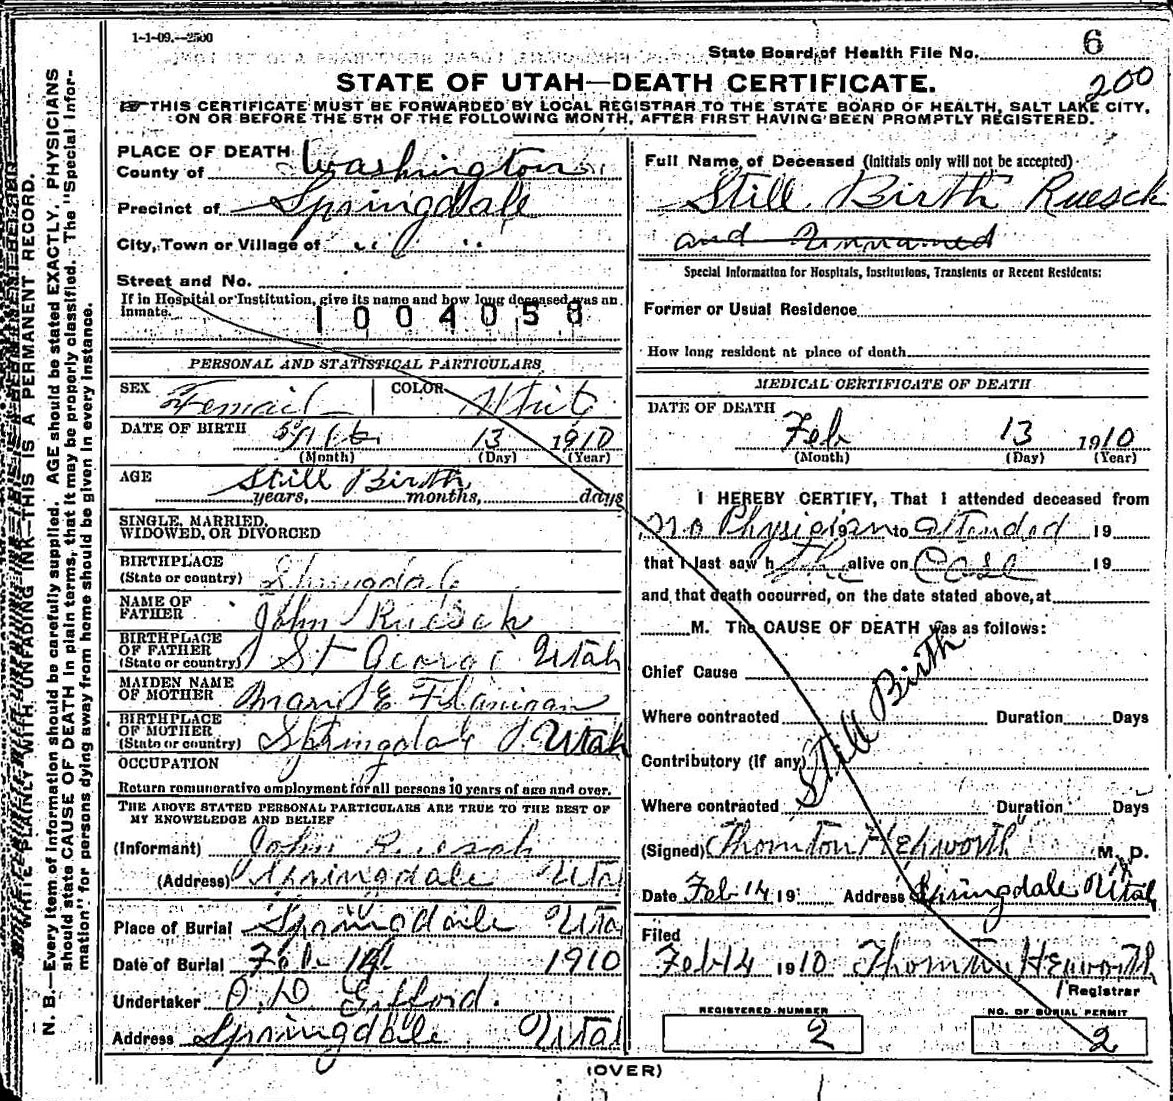 1-1-09.—2500
State Board of Health File No. 6
200
STATE OF UTAH—DEATH CERTIFICATE.
☞THIS CERTIFICATE MUST BE FORWARDED BY LOCAL REGISTRAR TO THE STATE BOARD OF HEALTH, SALT LAKE CITY,
ON OR BEFORE THE 5TH OF THE FOLLOWING MONTH, AFTER FIRST HAVING BEEN PROMPTLY REGISTERED.
PLACE OF DEATH
County of Washington
Precinct of Springdale
City, Town or Village of " "
Street and No.
If in Hospital or Institution, give its name and how long deceased was an
inmate.
1004058
PERSONAL AND STATISTICAL PARTICULARS
SEX Femail COLOR White
DATE OF BIRTH 13 1910
(Month) (Day) (Year)
AGE Still Birth
years, months, days
SINGLE, MARRIED,
WIDOWED, OR DIVORCED
BIRTHPLACE
(State or country) Springdale
NAME OF
FATHER John Ruesch
BIRTHPLACE
OF FATHER
(State or country) St George Utah
MAIDEN NAME
OF MOTHER E Flanigan
BIRTHPLACE
OF MOTHER
(State or country) Springdale Utah
OCCUPATION
Return remunerative employment for all persons 10 years of age and over.
THE ABOVE STATED PERSONAL PARTICULARS ARE TRUE TO THE BEST OF
MY KNOWELEDGE AND BELIEF
(Informant) John Ruesch
(Address) Springdale Uta
Place of Burial Springdale Uta
Date of Burial Feb 14 1910
Undertaker O. D. Gifford.
Address Springdale Utah
Full Name of Deceased (Initials only will not be accepted)
Still Birth Ruesch
and Unnamed
Special Information for Hospitals, Institutions, Transients or Recent Residents:
Former or Usual Residence
How long resident at place of death
MEDICAL CERTIFICATE OF DEATH
DATE OF DEATH
Feb 13 1910
(Month) (Day) (Year)
I HEREBY CERTIFY, That I attended deceased from
no Physician 19 to attended 19
that I last saw h the alive on Case 19
and that death occurred, on the date stated above, at
M. The CAUSE OF DEATH was as follows:
Chief Cause
Still Birth
Where contracted Duration Days
Contributory (If any)
Where contracted Duration Days
(Signed) Thornton Hepworth M. D.
Date Feb 14 19 Address Springdale Utah
Filed
Feb 14 1910 Thornton Hepworth
Registrar
REGISTERED NUMBER
2
NO. OF BURIAL PERMIT
2
(OVER)
WRITE PLAINLY WITH UNFADING INK—THIS IS A PERMANENT RECORD.
N. B.—Every item of information should be carefully supplied. AGE should be stated EXACTLY, PHYSICIANS
should state CAUSE OF DEATH in plain terms, that it may be properly classified. The "Special Infor-
mation" for persons dying away from home should be given in every instance.